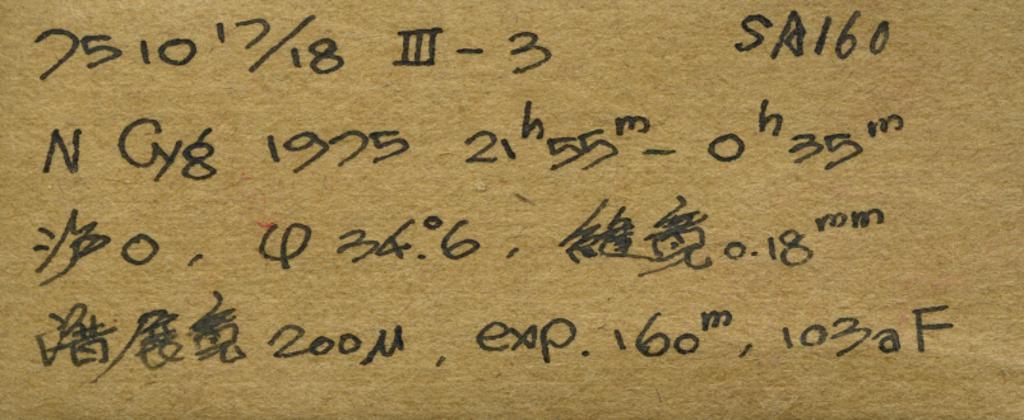 75 10 17/18 III - 3 SA160
N Cyg 1975 21ʰ55ᵐ - 0ʰ35ᵐ
沪0, φ 34.°6, 缝宽0.18ᵐᵐ
谱展宽 200μ, exp. 160ᵐ, 103aF